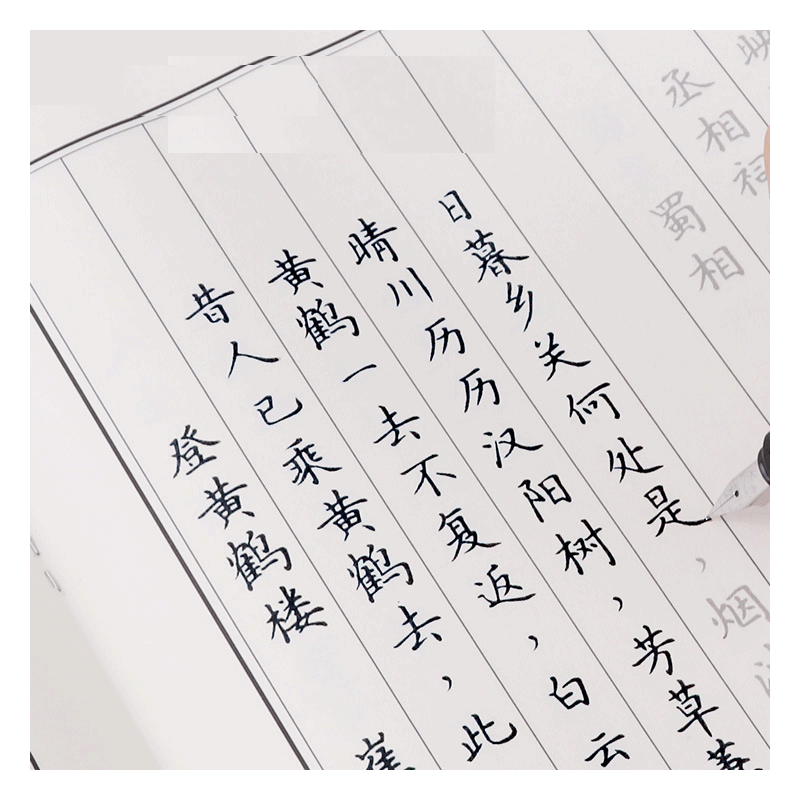 登黄鹤楼 崔
昔人已乘黄鹤去，此
黄鹤一去不复返，白云
晴川历历汉阳树，芳草萋
日暮乡关何处是，烟
蜀相
丞相祠
映